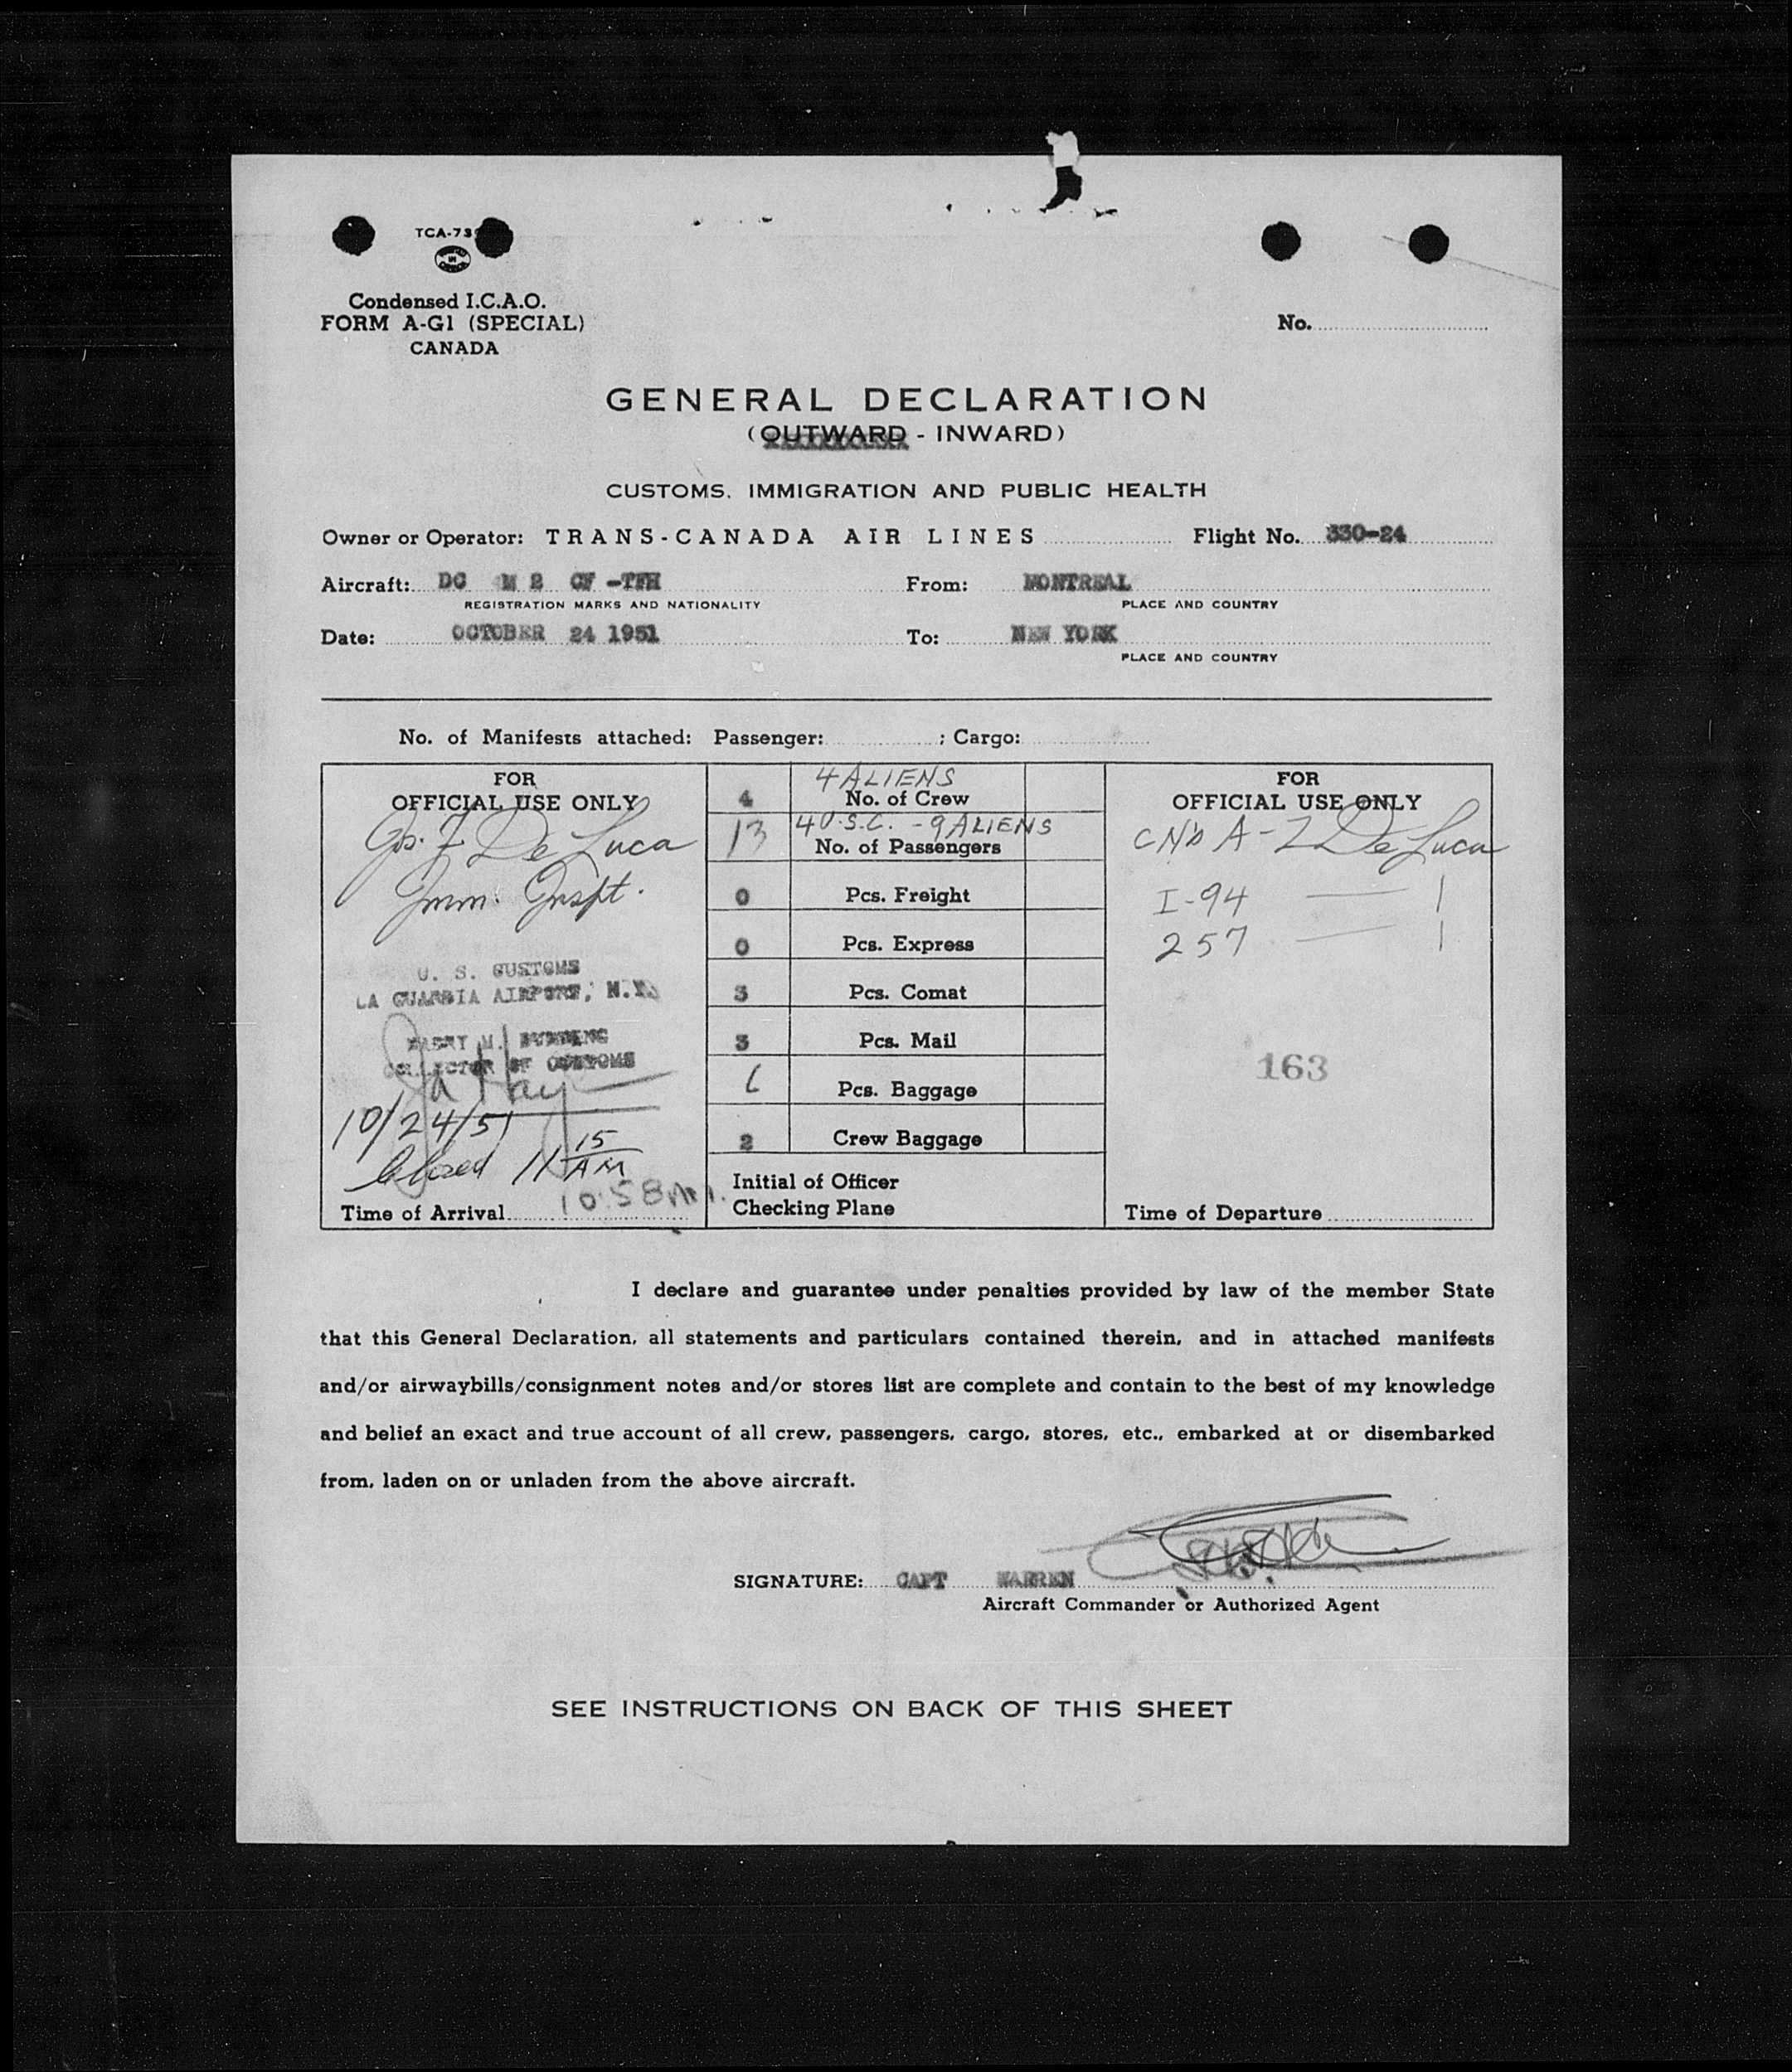 TCA-73
Condensed I.C.A.O.
FORM A-G1 (SPECIAL)
CANADA
No.
GENERAL DECLARATION
(OUTWARD - INWARD)
CUSTOMS, IMMIGRATION AND PUBLIC HEALTH
Owner or Operator: TRANS-CANADA AIR LINES Flight No. 330-24
Aircraft: DC M 2 CF -TFH From: MONTREAL
REGISTRATION MARKS AND NATIONALITY PLACE AND COUNTRY
Date: OCTOBER 24 1951 To: NEW YORK
PLACE AND COUNTRY
No. of Manifests attached: Passenger: ; Cargo:
FOR
OFFICIAL USE ONLY
De Luca
Imm. Inspt.
U. S. CUSTOMS
LA GUARDIA AIRPORT, N.Y.
HARRY M. DURNING
COLLECTOR OF CUSTOMS
10/24/51
Closed 11 15 AM
Time of Arrival 10:58 AM.
4 ALIENS
4 No. of Crew
4 U.S.C. - 9 ALIENS
13 No. of Passengers
0 Pcs. Freight
0 Pcs. Express
3 Pcs. Comat
3 Pcs. Mail
Pcs. Baggage
2 Crew Baggage
Initial of Officer
Checking Plane
FOR
OFFICIAL USE ONLY
De Luca
I-94 — 1
257 — 1
163
Time of Departure
I declare and guarantee under penalties provided by law of the member State
that this General Declaration, all statements and particulars contained therein, and in attached manifests
and/or airwaybills/consignment notes and/or stores list are complete and contain to the best of my knowledge
and belief an exact and true account of all crew, passengers, cargo, stores, etc., embarked at or disembarked
from, laden on or unladen from the above aircraft.
SIGNATURE: CAPT WARREN
Aircraft Commander or Authorized Agent
SEE INSTRUCTIONS ON BACK OF THIS SHEET